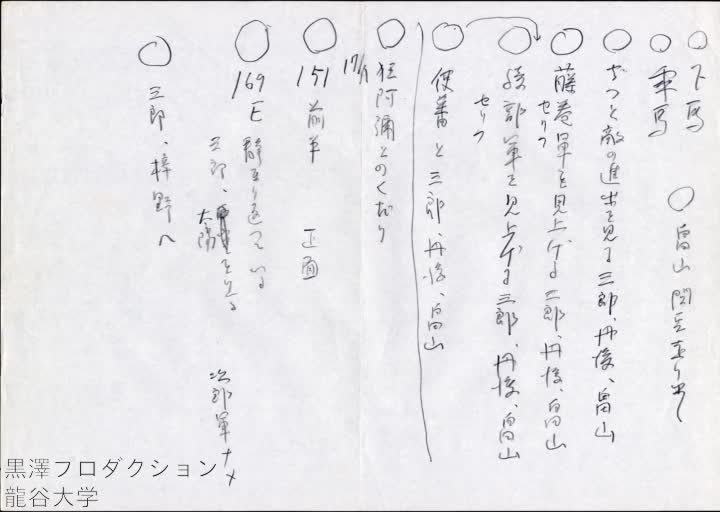 ○ 下馬
○ 乗馬 ○ 畠山 閲兵
○ ずっと敵の進出を見る 三郎、丹後、畠山
○ 藤巻軍を見上げる 三郎、丹後、畠山
セリフ
○ 綾部軍を見上げる 三郎、丹後、畠山
セリフ
○ 使番と三郎、丹後、畠山
○ 狂阿彌とのくだり
17/1
○ 151 前半 正面
○ 169 E 静まり返っている
三郎、太陽を見る 次郎軍ナメ
○ 三郎、梓野へ
黒澤プロダクション
龍谷大学